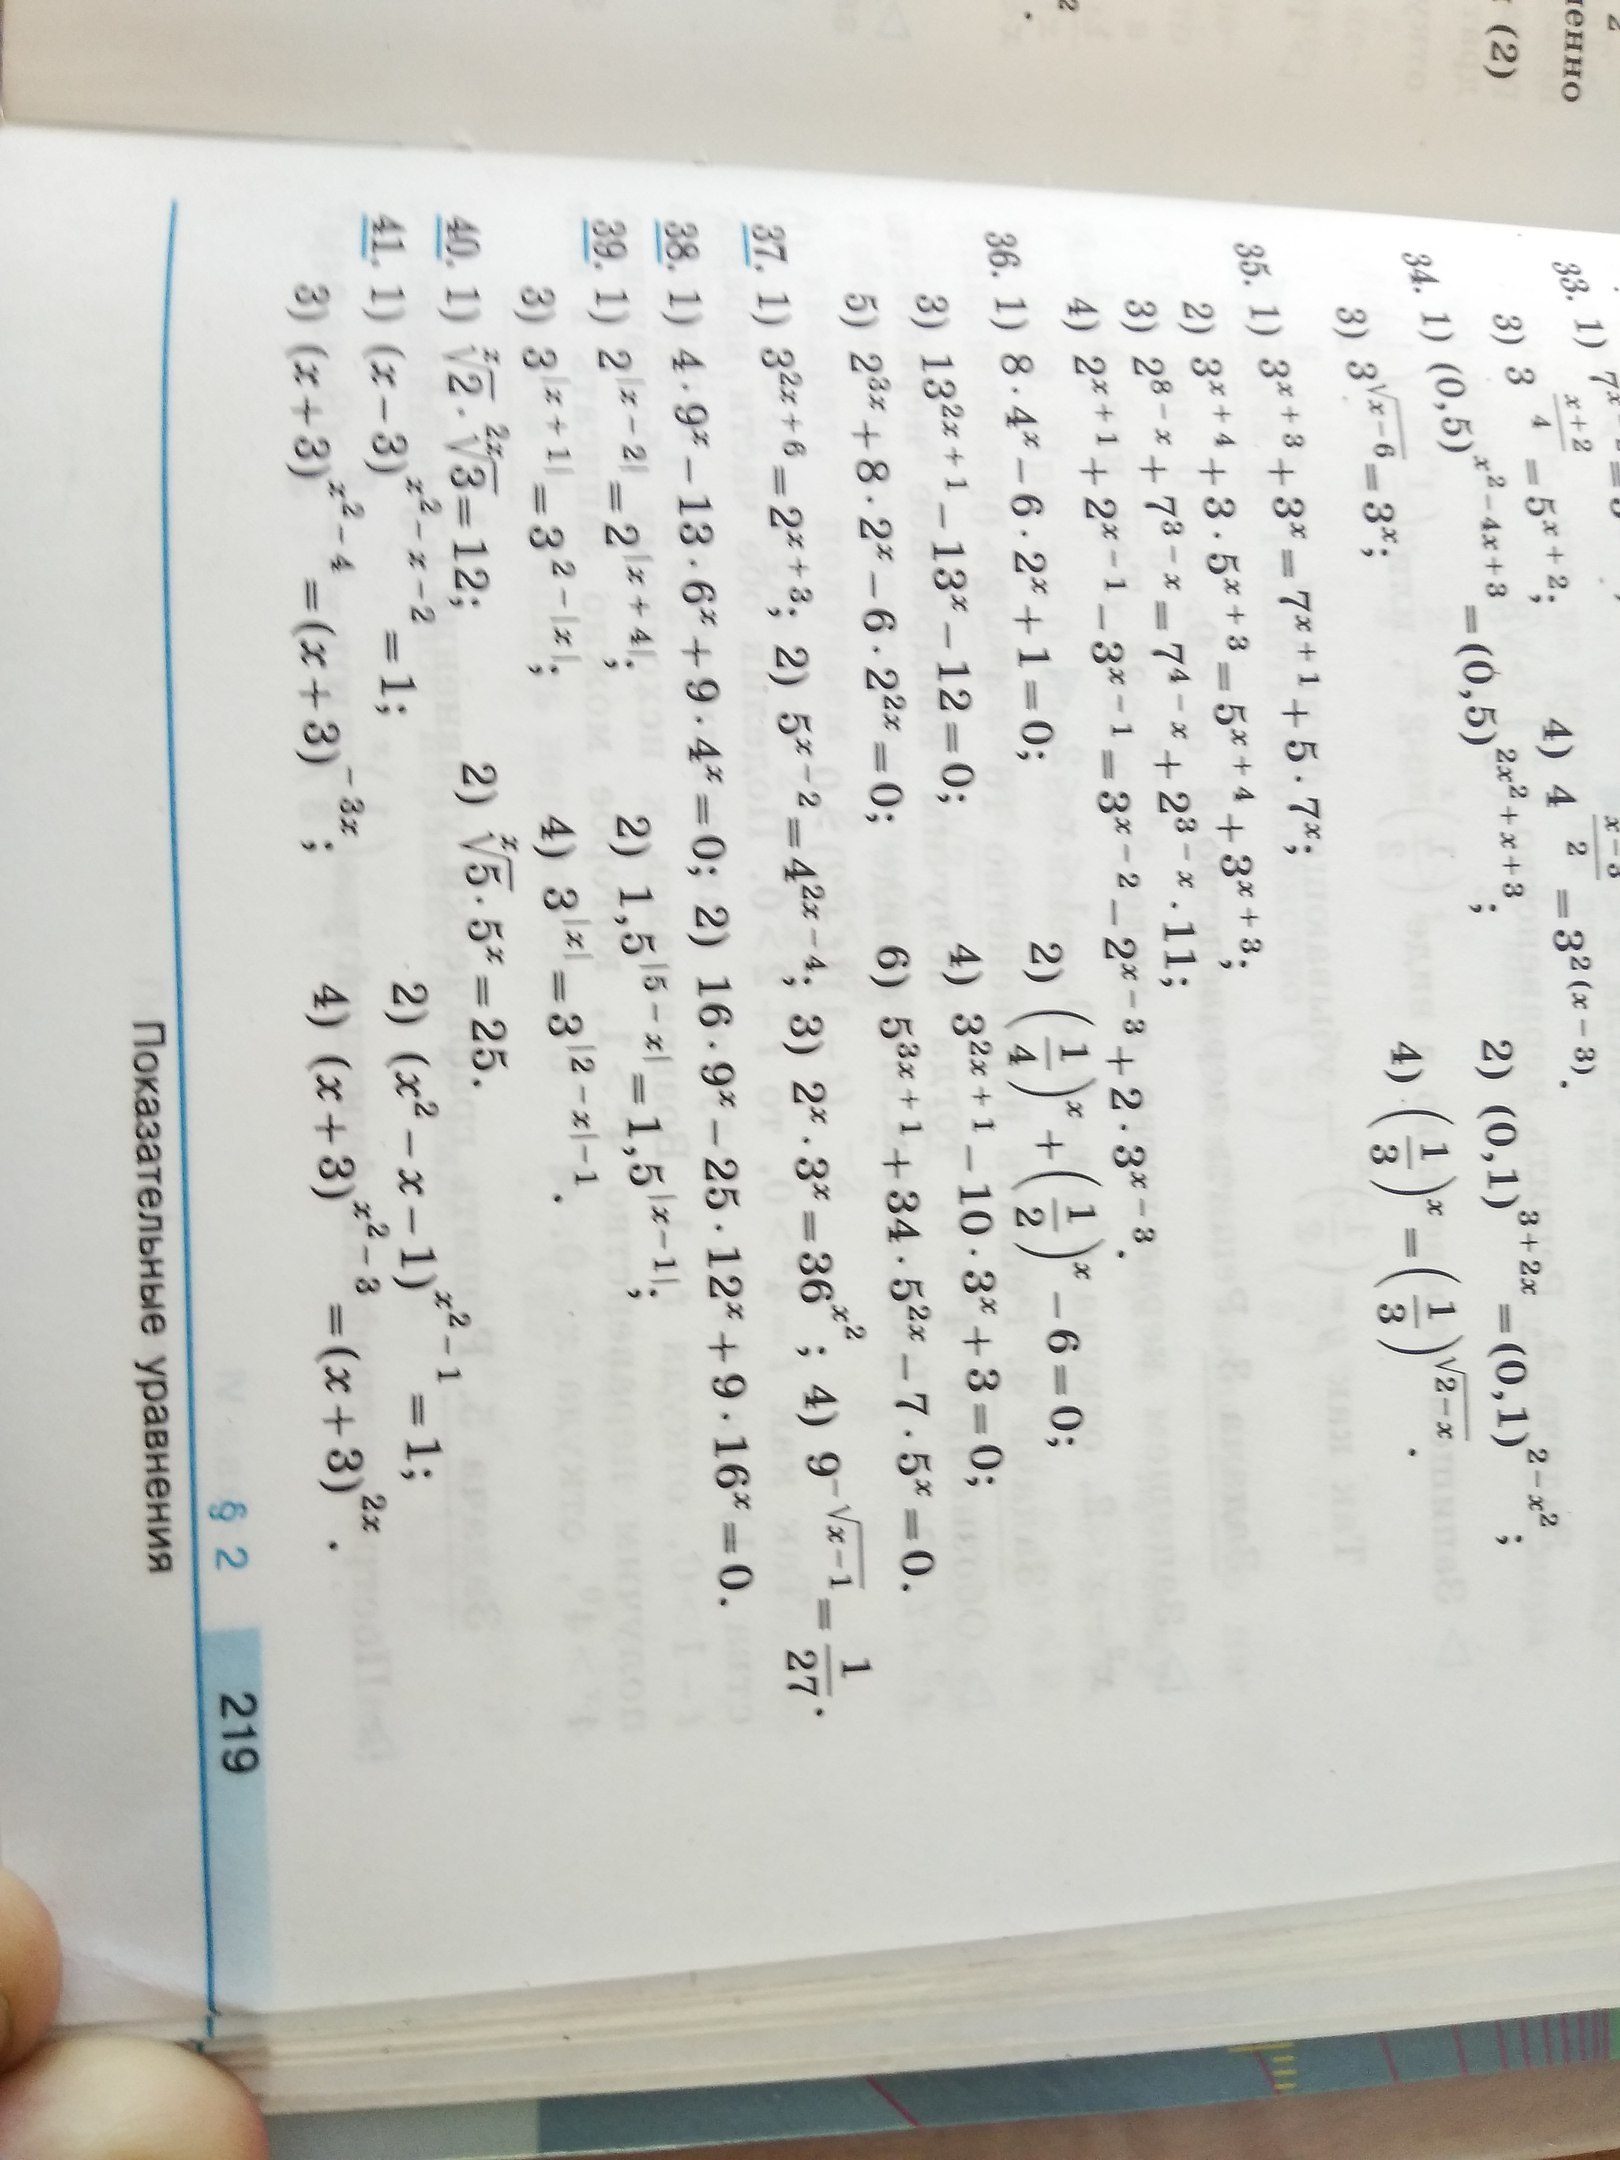 менно
(2)
33. 1) 7ˣ
3) 3^((x+2)/4) = 5^(x+2); 4) 4^((x−3)/2) = 3^(2(x−3)).
34. 1) (0,5)^(x²−4x+3) = (0,5)^(2x²+x+3); 2) (0,1)^(3+2x) = (0,1)^(2−x²);
3) 3^(√(x−6)) = 3ˣ; 4) (1/3)ˣ = (1/3)^(√(2−x)).
35. 1) 3^(x+3) + 3ˣ = 7^(x+1) + 5·7ˣ;
2) 3^(x+4) + 3·5^(x+3) = 5^(x+4) + 3^(x+3);
3) 2^(8−x) + 7^(3−x) = 7^(4−x) + 2^(3−x)·11;
4) 2^(x+1) + 2^(x−1) − 3^(x−1) = 3^(x−2) − 2^(x−3) + 2·3^(x−3).
36. 1) 8·4ˣ − 6·2ˣ + 1 = 0; 2) (1/4)ˣ + (1/2)ˣ − 6 = 0;
3) 13^(2x+1) − 13ˣ − 12 = 0; 4) 3^(2x+1) − 10·3ˣ + 3 = 0;
5) 2^(3x) + 8·2ˣ − 6·2^(2x) = 0; 6) 5^(3x+1) + 34·5^(2x) − 7·5ˣ = 0.
37. 1) 3^(2x+6) = 2^(x+3); 2) 5^(x−2) = 4^(2x−4); 3) 2ˣ·3ˣ = 36^(x²); 4) 9^(−√(x−1)) = 1/27.
38. 1) 4·9ˣ − 13·6ˣ + 9·4ˣ = 0; 2) 16·9ˣ − 25·12ˣ + 9·16ˣ = 0.
39. 1) 2^|x−2| = 2^|x+4|; 2) 1,5^|5−x| = 1,5^|x−1|;
3) 3^|x+1| = 3^(2−|x|); 4) 3^|x| = 3^(|2−x|−1).
40. 1) ˣ√2 · ²ˣ√3 = 12; 2) ˣ√5 · 5ˣ = 25.
41. 1) (x−3)^(x²−x−2) = 1; 2) (x²−x−1)^(x²−1) = 1;
3) (x+3)^(x²−4) = (x+3)^(−3x); 4) (x+3)^(x²−3) = (x+3)^(2x).
§ 2 219
Показательные уравнения